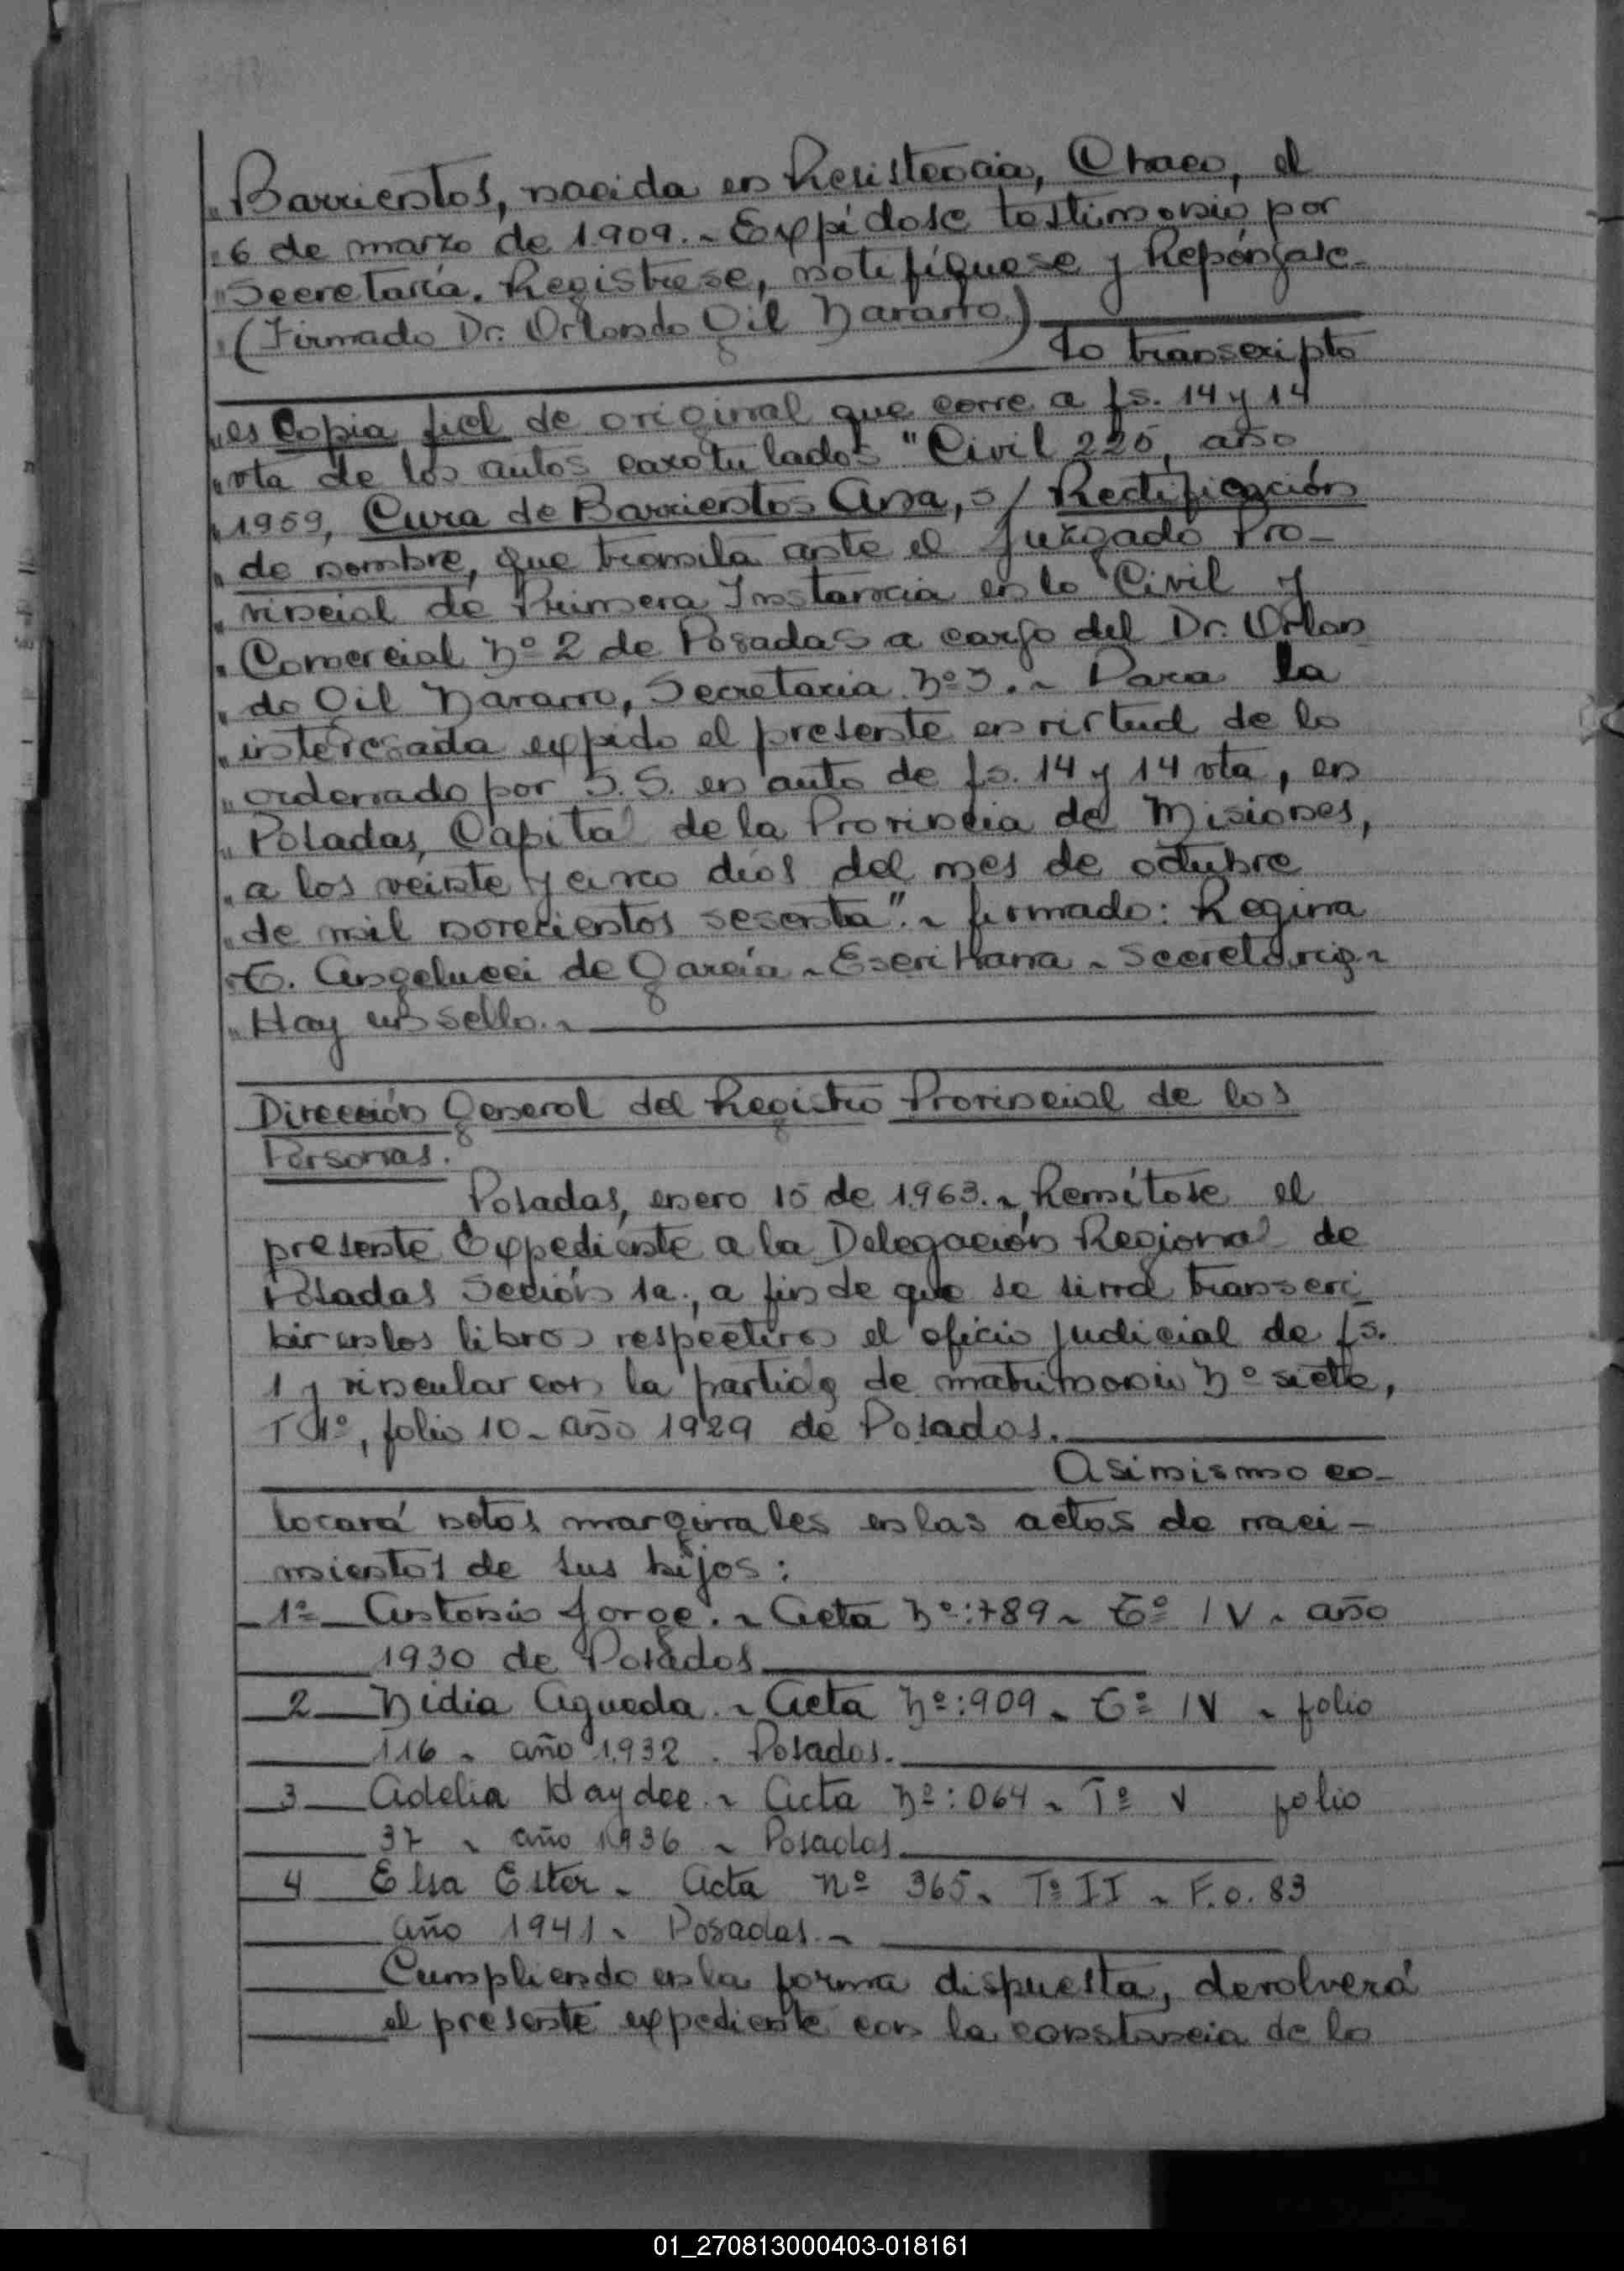 " Barrientos, nacida en Resistencia, Chaco, el
" 6 de marzo de 1.909.- Expídase testimonio por
" Secretaría. Regístrese, notifíquese y Repóngase.
" (Firmado Dr. Orlando Gil Navarro)
Lo transcripto
" es copia fiel de original que corre a fs. 14 y 14
" vta de los autos caratulados "Civil 225, año
" 1.959, Cura de Barrientos Ana, s/ Rectificación
" de nombre, que tramita ante el Juzgado Pro-
" vincial de Primera Instancia en lo Civil y
" Comercial Nº 2 de Posadas a cargo del Dr. Orlan
" do Gil Navarro, Secretaria Nº 3.- Para la
" interesada expido el presente en virtud de lo
" ordenado por S.S. en auto de fs. 14 y 14 vta, en
" Posadas, Capital de la Provincia de Misiones,
" a los veinte y cinco días del mes de octubre
" de mil novecientos sesenta".- firmado: Regina
" T. Angelucci de García - Escribana - Secretaria.-
" Hay un sello.-
Dirección General del Registro Provincial de los
Personas.
Posadas, enero 15 de 1.963.- Remítase el
presente Expediente a la Delegación Regional de
Posadas Sección 1a., a fin de que se sirva transcri
bir en los libros respectivos el oficio judicial de fs.
1 y vincular con la partida de matrimonio Nº siete,
T 1º, folio 10 - año 1929 de Posadas.
Asimismo co-
locará notas marginales en las actas de naci-
mientos de sus hijos:
1º Antonio Jorge.- Acta Nº: 789 - Tº IV - año
1930 de Posadas
2 Nidia Agueda.- Acta Nº: 909 - Tº IV - folio
116 - año 1.932. Posadas.
3 Adelia Haydee.- Acta Nº: 064 - Tº V folio
37 - año 1936 - Posadas
4 Elsa Ester - Acta Nº 365 - Tº II - F.o. 83
año 1941 - Posadas.-
Cumpliendo en la forma dispuesta, devolverá
el presente expediente con la constancia de lo
01_270813000403-018161